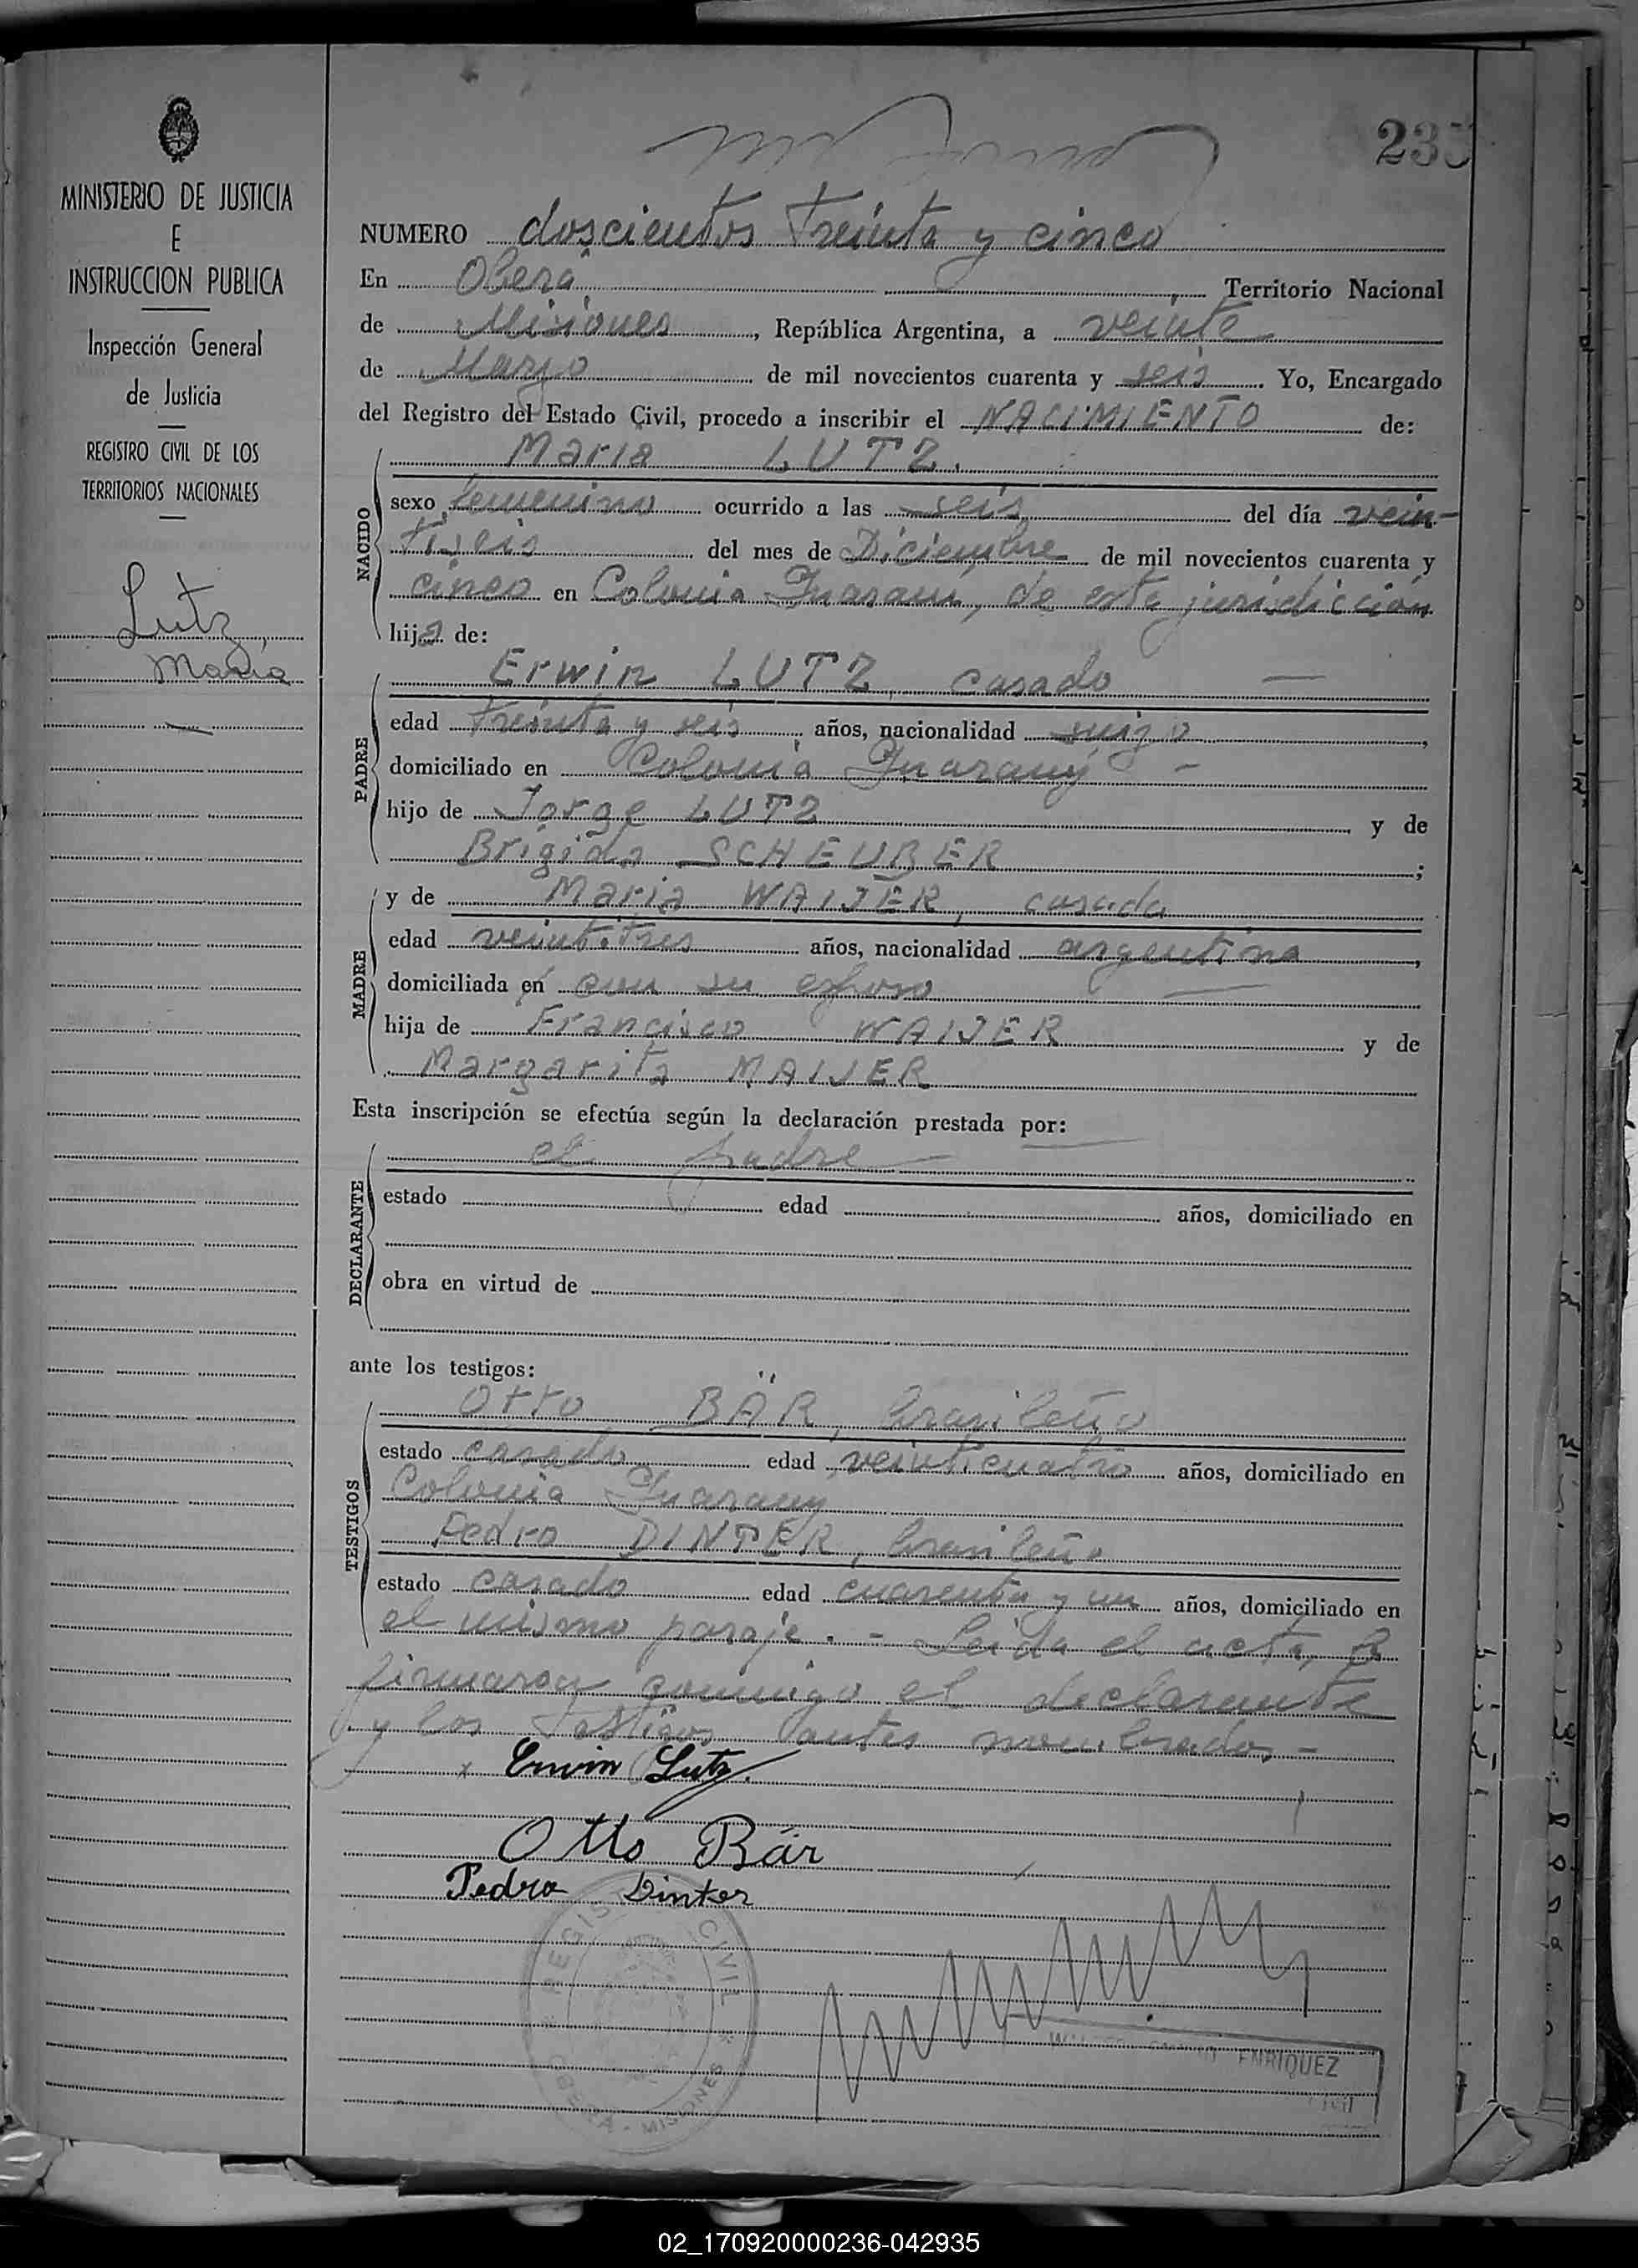 235
MINISTERIO DE JUSTICIA
E
INSTRUCCION PUBLICA
Inspección General
de Justicia
REGISTRO CIVIL DE LOS
TERRITORIOS NACIONALES
Lutz,
María
NUMERO doscientos treinta y cinco
En Oberá, Territorio Nacional
de Misiones, República Argentina, a veinte
de Marzo de mil novecientos cuarenta y seis. Yo, Encargado
del Registro del Estado Civil, procedo a inscribir el NACIMIENTO de:
NACIDO
Maria LUTZ.
sexo femenino ocurrido a las seis del día vein-
tiseis del mes de Diciembre de mil novecientos cuarenta y
cinco en Colonia Guaraní, de esta jurisdicción
hija de:
PADRE
Erwin LUTZ, casado —
edad treinta y seis años, nacionalidad suizo,
domiciliado en Colonia Guarany -
hijo de Jorge LUTZ y de
Brigida SCHEUBER;
MADRE
y de Maria WAIJER, casada
edad veintitres años, nacionalidad argentina,
domiciliada en con su esposo —
hija de Francisco WAIJER y de
Margarita MAIJER
Esta inscripción se efectúa según la declaración prestada por:
DECLARANTE
el padre —
estado edad años, domiciliado en
obra en virtud de
ante los testigos:
TESTIGOS
Otto BÄR, brazileño
estado casado edad veinticuatro años, domiciliado en
Colonia Guarany
Pedro DINTER, brasileño
estado casado edad cuarenta y un años, domiciliado en
el mismo paraje. - Leida el acta,
firmaron conmigo el declarante
y los testigos antes nombrados -
x Erwin Lutz.
Otto Bär
Pedro Dinter
REGISTRO CIVIL
OBERA - MISIONES
ENRIQUEZ
02_170920000236-042935